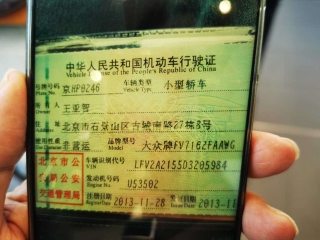 中华人民共和国机动车行驶证
Vehicle License of the People's Republic of China
号牌号码 京HP0246 车辆类型 小型轿车
Plate No. Vehicle Type
所有人 王亚智
Owner
住址 北京市石景山区古城南路27栋8号
Address
使用性质 非营运 品牌型号 大众牌FV7162FAAWG
Model
北京市公 车辆识别代号 LFV2A2155D3205984
VIN
安局公安 发动机号码 U53502
Engine No.
交通管理局 注册日期 2013-11-28 发证日期 2013-11
Register Date Issue Date